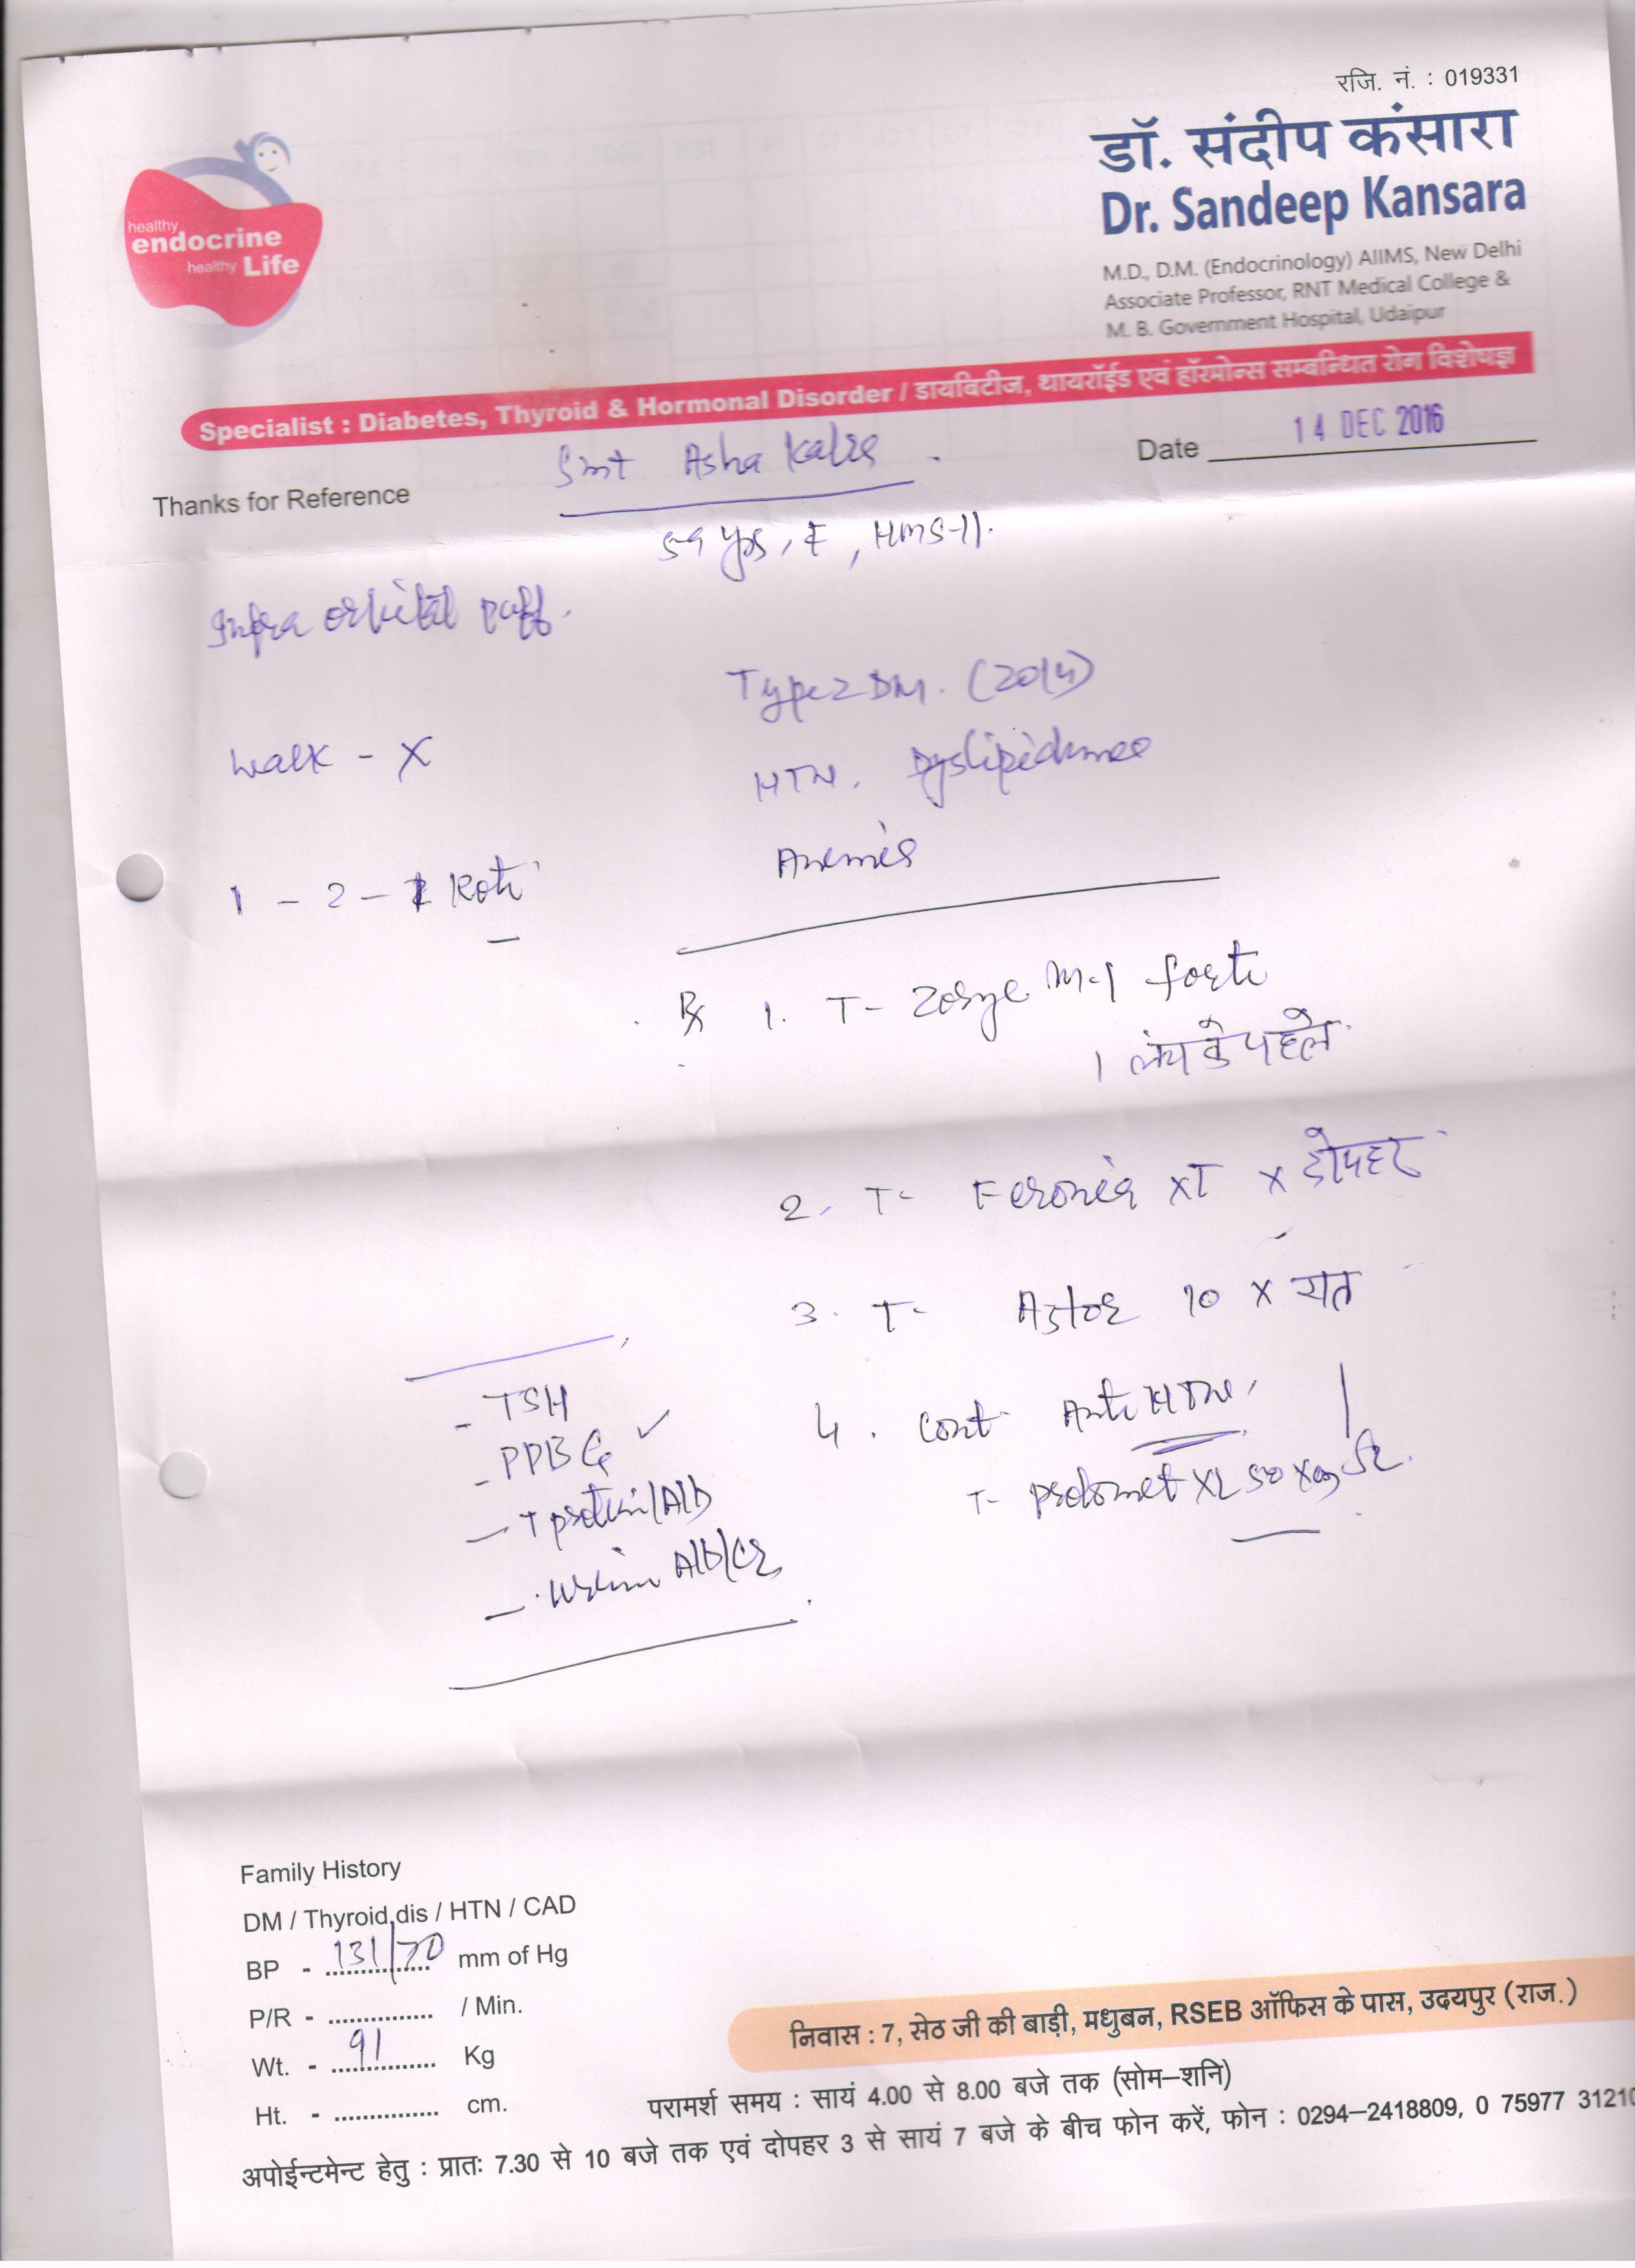 रजि. नं. : 019331
डॉ. संदीप कंसारा
Dr. Sandeep Kansara
M.D., D.M. (Endocrinology) AIIMS, New Delhi
Associate Professor, RNT Medical College &
M. B. Government Hospital, Udaipur
healthy
endocrine
healthy Life
Specialist : Diabetes, Thyroid & Hormonal Disorder / डायबिटीज, थायरॉईड एवं हॉरमोन्स सम्बन्धित रोग विशेषज्ञ
Date 14 DEC 2016
Thanks for Reference Smt Asha
59 yrs, F, HMS-11.
Infra orbital puff.
Type 2 DM. (2014)
Walk - X
HTN. Dyslipidemia
Anemia
1 - 2 - 1 Roti
Rx 1. T- M-1 forte
1 लंच के पहले
2. T- Feronia XT x दोपहर
3. T- Astor 10 x रात
4. Cont Anti HTN
T- XL 50 x
- TSH
- PPBG ✓
- T protein/Alb
- Urine Alb/Cr
Family History
DM / Thyroid dis / HTN / CAD
BP - 131/70 mm of Hg
P/R - ............... / Min.
Wt. - 91 Kg
Ht. - ............... cm.
निवास : 7, सेठ जी की बाड़ी, मधुबन, RSEB ऑफिस के पास, उदयपुर (राज.)
परामर्श समय : सायं 4.00 से 8.00 बजे तक (सोम–शनि)
अपोईन्टमेन्ट हेतु : प्रातः 7.30 से 10 बजे तक एवं दोपहर 3 से सायं 7 बजे के बीच फोन करें, फोन : 0294–2418809, 0 75977 31210